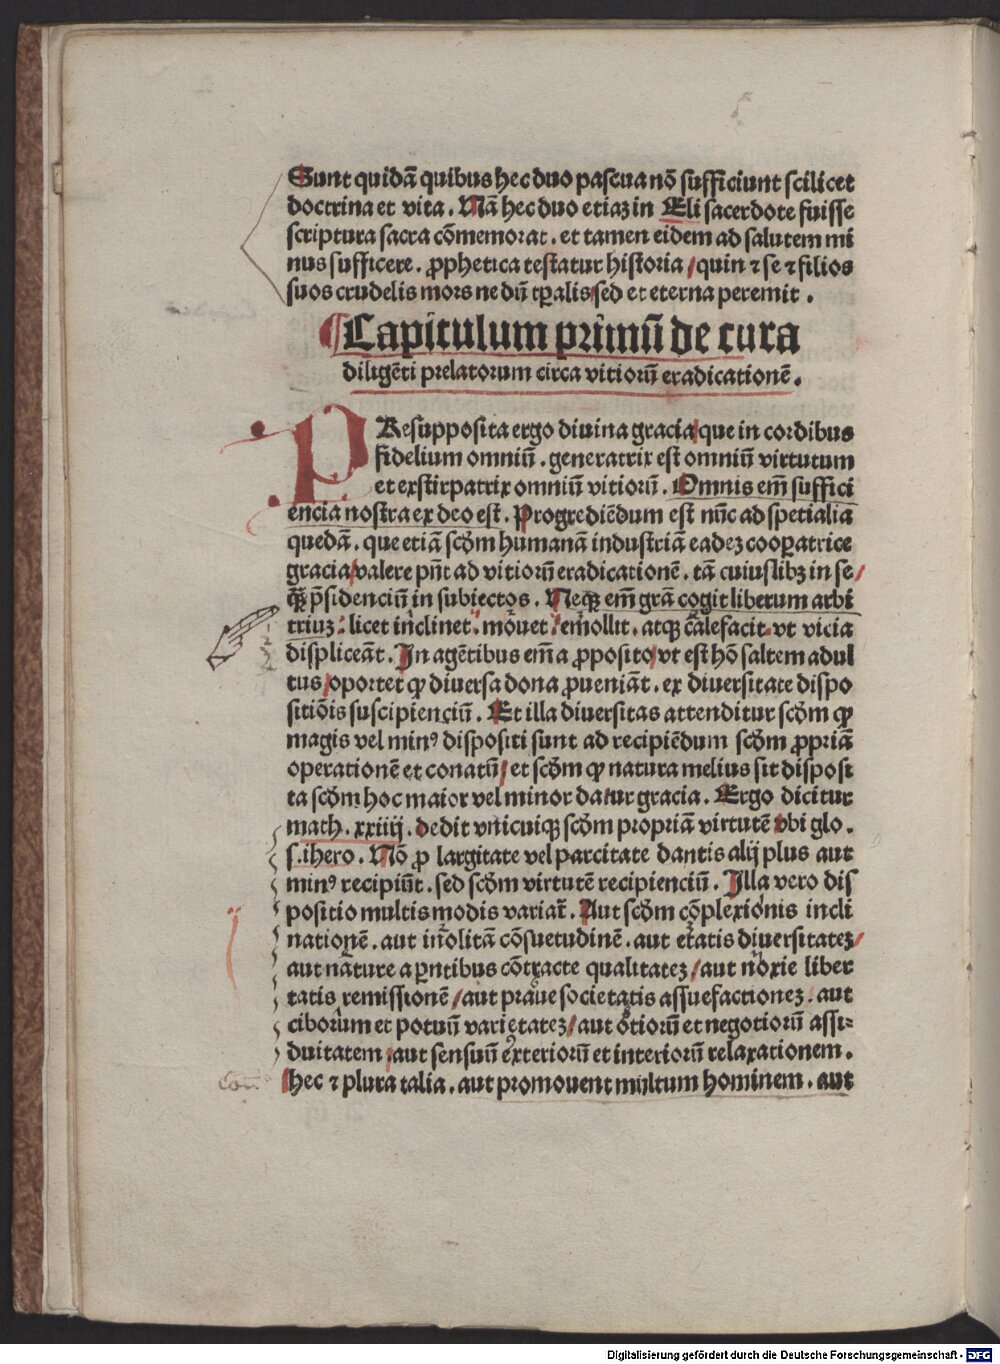 Sunt quidā quibus hec duo pascua nō sufficiunt scilicet
doctrina et vita. Nā hec duo etiaz in Eli sacerdote fuisse
scriptura sacra cōmemorat. et tamen eidem ad salutem mi
nus sufficere. ꝓphetica testatur historia/quin ⁊ se ⁊ filios
suos crudelis mors nedū tꝑalis sed et eterna peremit.
¶Capitulum primū de cura
diligēti prelatorum circa vitiorū eradicationē.
PResupposita ergo diuina gracia que in cordibus
fidelium omniū. generatrix est omniū virtutum
et exstirpatrix omniū vitiorū. Omnis em̄ suffici
encia nostra ex deo est. Progrediēdum est nūc ad spetialia
quedā. que etiā scḋm humanā industriā eadez cooꝑatrice
gracia/valere pn̄t ad vitiorū eradicationē. tā cuiuslibꝫ in se/
qꝫ̄ p̄sidenciū in subiectos. Neqꝫ em̄ grā cogit liberum arbi
triuz: licet inclinet: mouet: emollit. atqꝫ calefacit. vt vicia
displiceāt. In agētibus em̄ a ꝓposito/vt est hō saltem adul
tus/oportet ꝙ diuersa dona ꝓueniāt. ex diuersitate dispo
sitiōis suscipienciū. Et illa diuersitas attenditur scḋm ꝙ
magis vel minꝰ dispositi sunt ad recipiēdum scḋm ꝓpriā
operationē et conatū/et scḋm ꝙ natura melius sit disposi
ta scḋm hoc maior vel minor datur gracia. Ergo dicitur
math. xxiiij. dedit vnicuiqꝫ scḋm propriā virtutē vbi glo.
s. ihero. Nō ꝓ largitate vel parcitate dantis alij plus aut
minꝰ recipiūt. sed scḋm virtutē recipienciū. Illa vero dis
positio multis modis variat᷑. Aut scḋm cōplexionis incli
nationē. aut inolitā cōsuetudinē. aut etatis diuersitatez/
aut nature a ꝑentibus cōtracte qualitatez/aut noxie liber
tatis remissionē/aut praue societatis assuefactionez. aut
ciborum et potuū varietatez/aut otiorū et negotiorū assi⸗
duitatem/aut sensuū exteriorū et interiorū relaxationem.
hec ⁊ plura talia. aut promouent multum hominem. aut
Digitalisierung gefördert durch die Deutsche Forschungsgemeinschaft - DFG